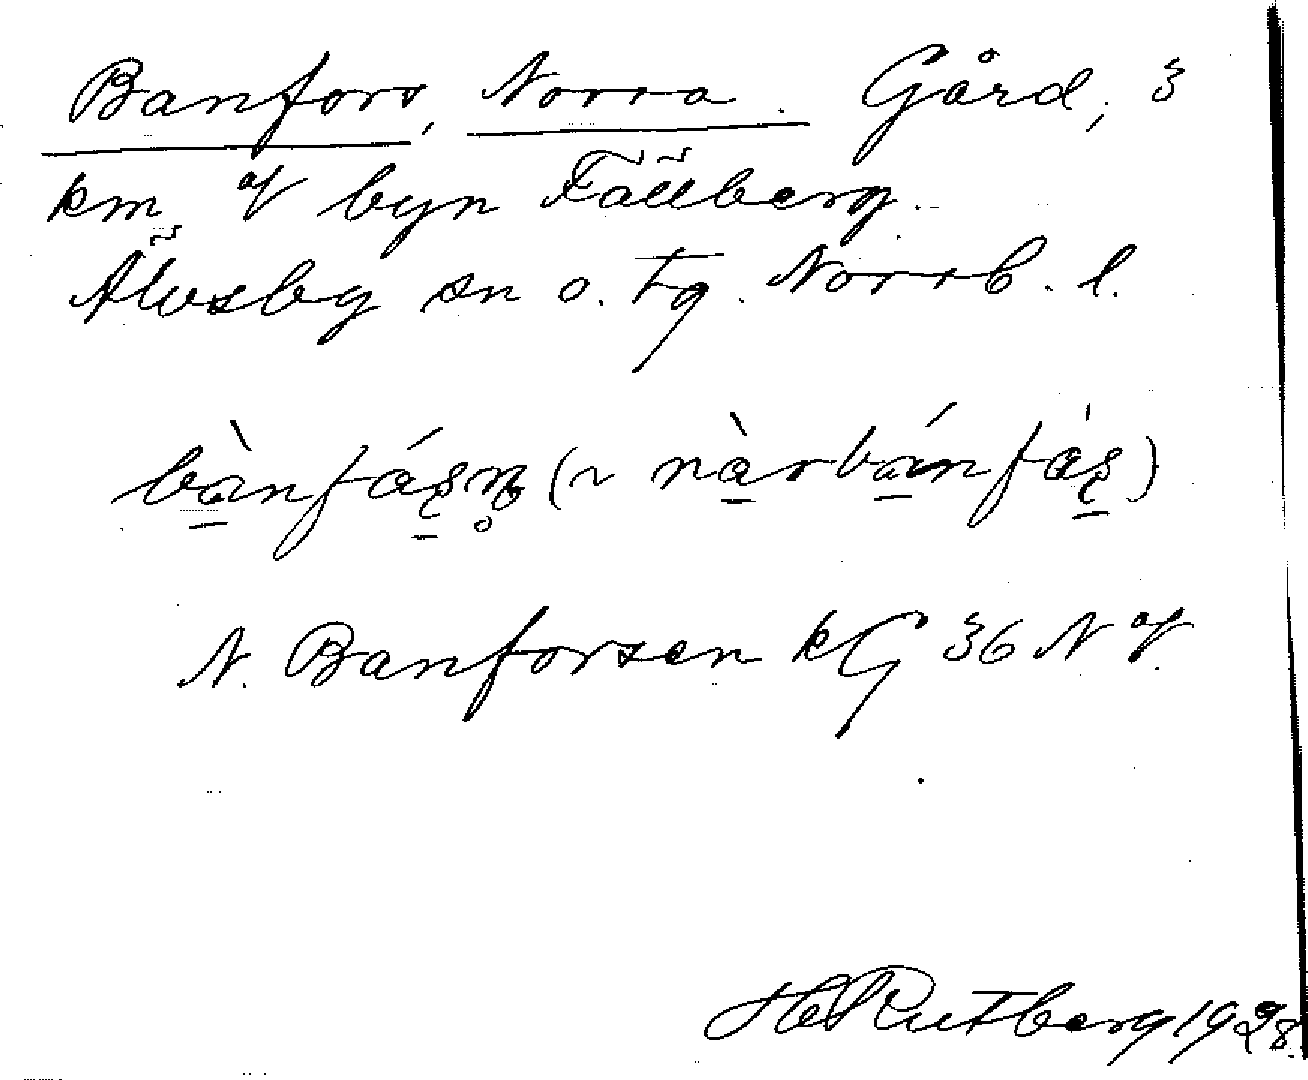 Banfors, Norra. Gård, 3
km V byn Fällberg.
Älvsby sn o. tg. Norrb. l.
bànfáşn̥ (~ nàrbánfàş)
N. Banforsen kG 36 N V.
H Rutberg 1928.